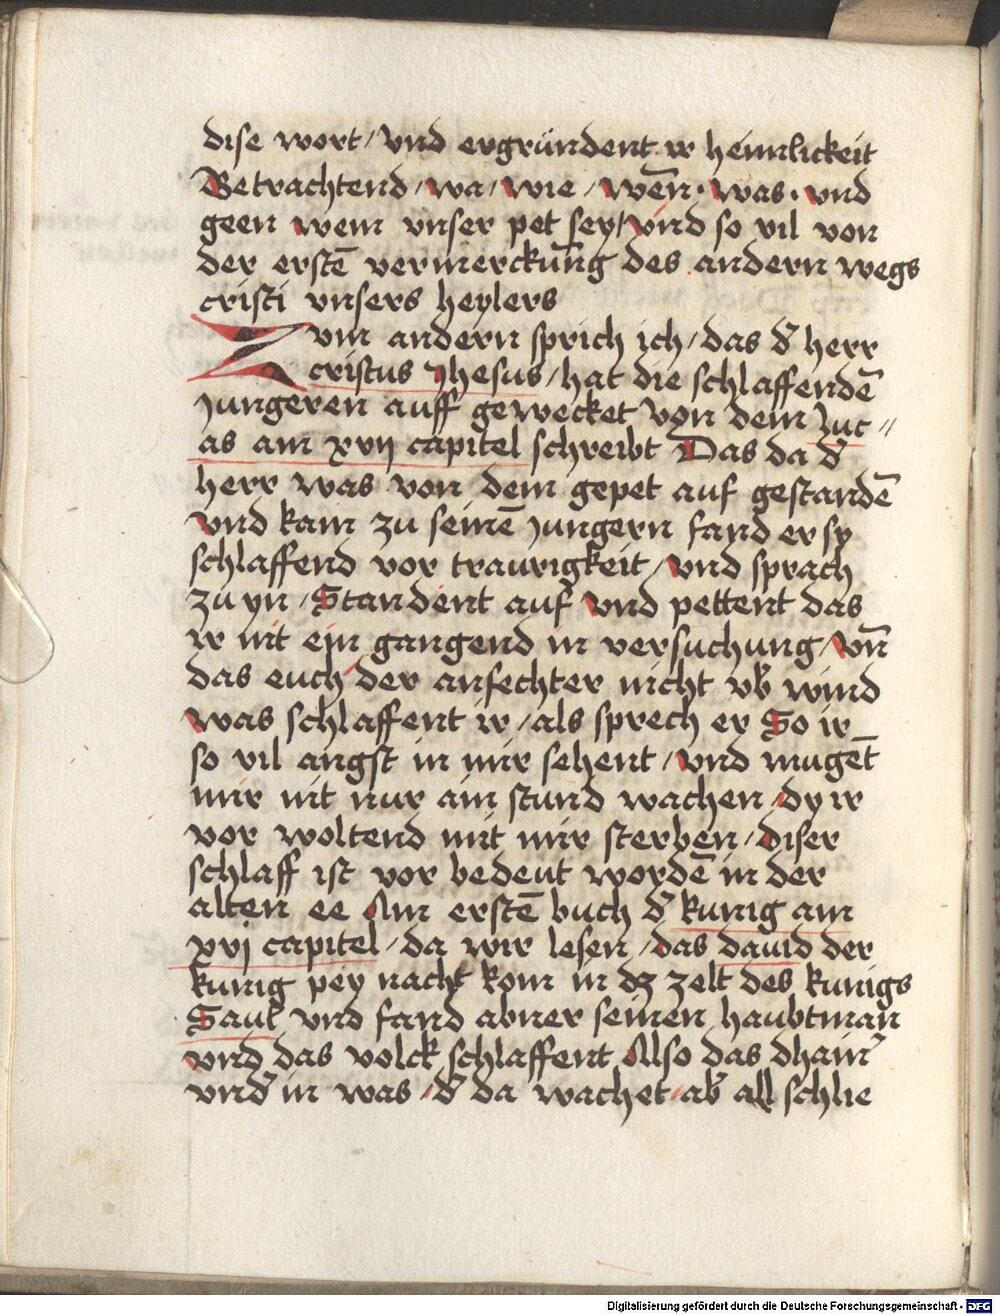 dise wort / vnd ergründent ir heimlickeit
Betrachtend / wa / wie / wen̄ · was · vnd
geen wem vnser pet sey / vnd so vil von
der erstē vermerckun̄g des andern wegs
cristi vnsers heylers
Zum andern sprich ich / das d̄ herr
cristus Jhesus / hat die schlaffendē
jungeren auff gewecket von dem luc〃
as am xxij capitel schreibt Das da d̄
herr was von dem gepet auf gestandē
vnd kam zu seinē jungern fand er sy
schlaffend vor traurigkeit / vnd sprach
zu yn / Standent auf vnd pettent das
ir nit ein gangend in versuchung / vn̄
das euch der anfechter nicht vb̄ wind
was schlaffent ir / als sprech er So ir
so vil angst in mir sehent / vnd mugēt
mir nit nur ain stund wachen / dy ir
vor woltend mit mir sterben / diser
schlaff ist vor bedeut wordē in der
alten ee Am erstē buch d̄ kunig am
xxvj capitel / da wir lesen / das dauid der
kunig pey nacht kom in dz zelt des kunigs
Saul vnd fand abner seinen haubtman̄
vnd das volck schlaffent Also das dhain̄
vnd̄ in was / d̄ da wachet / ab̄ all schlie
Digitalisierung gefördert durch die Deutsche Forschungsgemeinschaft - DFG